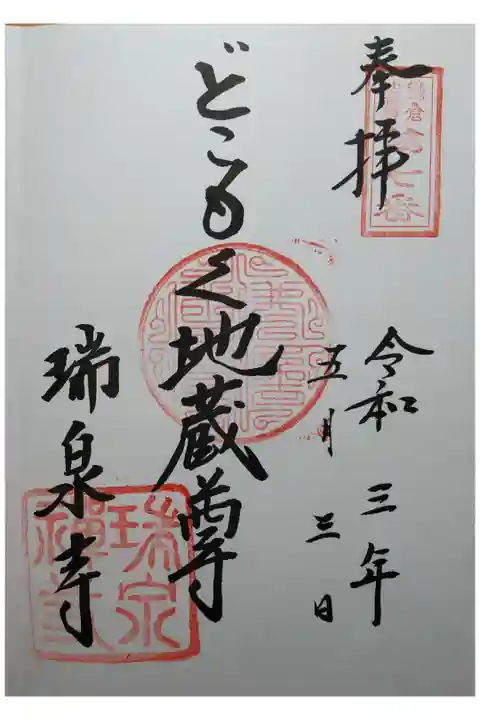 奉拝
どこもく地蔵尊
瑞泉寺
令和三年
五月三日
瑞泉